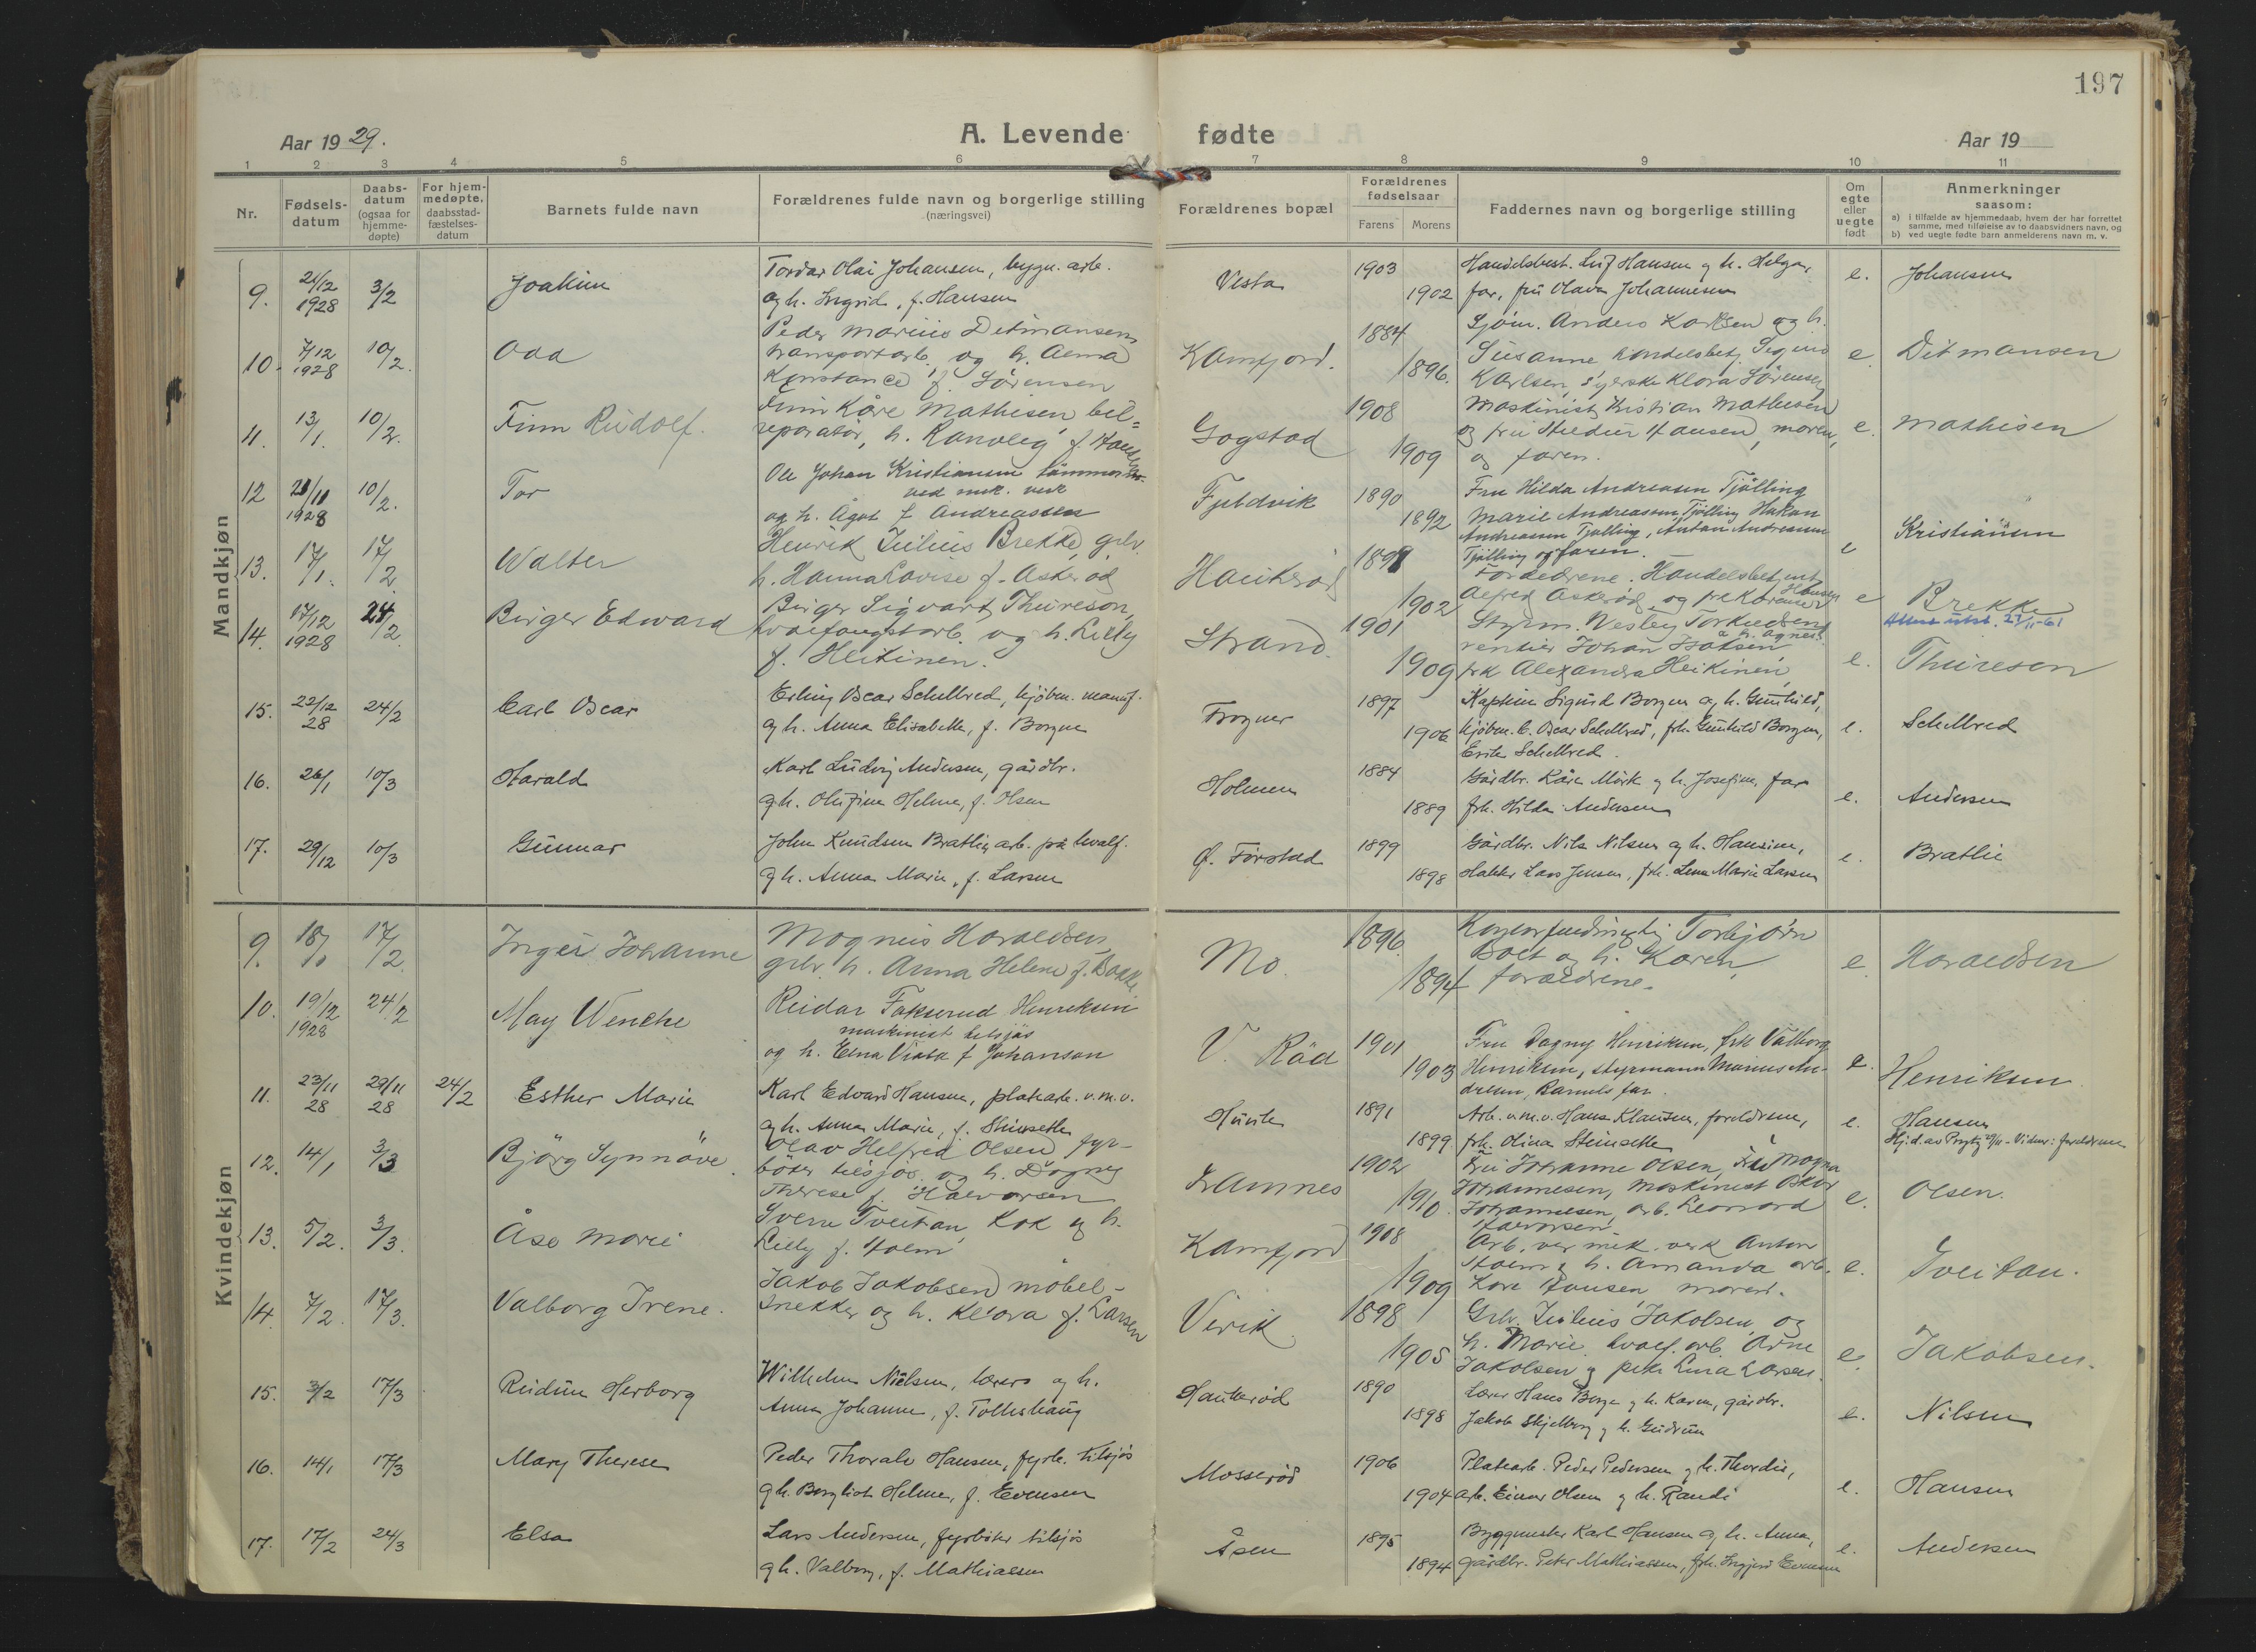 197
Aar 1929.
A. Levende fødte
Aar 19
1 2 3 4 5 6 7 8 9 10 11
Nr.
Fødsels-
datum
Daabs-
datum
(ogsaa for
hjemme-
døpte)
For hjem-
medøpte.
daabsstad-
fæstelses-
datum
Barnets fulde navn
Forældrenes fulde navn og borgerlige stilling
(næringsvei)
Forældrenes bopæl
Forældrenes
fødselsaar
Farens Morens
Faddernes navn og borgerlige stilling
Om
egte
eller
uegte
født
Anmerkninger
saasom:
a) i tilfælde av hjemmedaab, hvem der har forrettet
samme, med tilføielse av to daabsvidners navn, og
b) ved uegte fødte barn anmelderens navn m. v.
Mandkjøn
9. 21/12 1928 3/2 Joakim
Tordar Olai Johansen, bygn. arb.
og h. Ingrid, f. Hansen
Vesta 1903 1902
Handelsbest. Leif Hansen og h. Helga,
far, fru Olava Johannesen
e. Johansen
10. 7/12 1928 10/2. Odd
Peder Marius Ditmansen,
transportarb. og h. Alma
Konstance f. Sørensen
Kamfjord. 1884 1896.
Sjøm. Anders Karlsen og h.
Susanne handelsbetj. Sigurd
Karlsen, syerske Klara Sørensen
e Ditmansen
11. 13/1. 10/2. Finn Rudolf.
Finn Kåre Mathisen, bil-
reparatør, h. Ranveig f. Hansen
Gogstad 1908 1909
Maskinist Kristian Mathisen
og fru Hansen, moren,
og faren.
e. Mathisen
12 21/11 1928 10/2. Tor
Ole Johan Kristiansen tømmerm.
ved mek. verk
og h. Ågot f Andreassen
Fjeldvik 1890 1892
Fru Hilda Andreasen Tjølling
Marie Andreassen Tjølling Håkon
Andreassen Tjølling, Anton Andreassen
Tjølling og faren.
e Kristiansen
13. 17/1. 17/2 Walter
Henrik Julius Brekke, grbr.
h. Hanna Lovise f. Askerød
Haukerød 1902
Forældrene. Handelsbetjent
Alfred Askerød og frk Hansen
e Brekke
Attest utst. 27/11-61
14. 17/12 1928 24/2 Birger Edward
Birger Sigvart Thureson,
hvalfangstarb. og h. Lilly
f. Heikinen.
Strand. 1901 1909
Styrm. Wesley Torkildsen
a h. Agnes.
rentier Johan Isaksen
frk Alexandra Heikinen
e. Thureson
15. 22/12 28 24/2 Carl Oscar
Erling Oscar Schelbred, kjøbm. manuf.
og h. Anna Elisabeth, f. Borgen
Frogner 1897 1906
Kaptein Sigurd Borgen og h. Gunhild,
kjøbm. C. Oscar Schelbred, frk. Gunhild Borgen,
Erik Schelbred.
e. Schelbred
16. 26/1 10/3 Harald
Karl Ludvig Andersen, gårdbr.
og h. Olufine Helene, f. Olsen
Holmen 1884 1889
Gårdbr. Kåre Mørk og h. Josefine, far
frk. Hilda Andersen
e. Andersen
17. 29/12 10/3 Gunnar
John Knudsen Bratlie, arb. på hvalf.
og h. Anna Marie, f. Larsen
Ø. Førstad 1899 1898
Gårdbr. Nils Nilsen og h. Hansine,
Lars Jensen, frk. Lena Marie Larsen
e. Bratlie
Kvindekjøn
9. 18/1 17/2. Inger Johanne
Magnus Haraldsen,
grbr. h. Anna Helene f. Bakke
Mo. 1896 1894
Torbjørn
Bolt og h. Karen,
forældrene.
e Haraldsen
10. 19/12 1928 24/2 May Wenche
Reidar Fokserud Henriksen
maskinist tilsjøs
og h. Edna Viola f Johanson
V. Råd 1901 1903
Fru Dagny Henriksen, frk Valborg
Henriksen, styrmann Marius An-
dersen, Ramnes far.
e. Henriksen
11. 23/11 28 29/11 28 24/2 Esther Marie
Karl Edvard Hansen, platearb. v. m. v.
og h. Anna Marie, f. Steinseth
Hunik 1891 1899
Arb. v. m. v. Hans Klausen, foreldrene,
frk. Olina Steinseth
e. Hansen
Hj.d. av Prytz 29/11 - Vidner: foreldrene
12. 14/1 3/3 Bjørg Synnøve.
Olav Helfred Olsen, fyr-
bøter tilsjøs og h. Dagny
Therese f. Halvorsen
Framnes 1902 1910.
Fru Johanne Olsen, Fru Magna
Johannesen, maskinist Oskar
Johannesen, arb. Leonard
Halvorsen
e. Olsen.
13. 5/2. 3/3. Åse Marie
Sverre Tveitan, kok og h.
Lilly f. Holm
Kamfjord 1908 1909
Arb. ved mek. verk Anton
Holm og h. Amanda arb.
Kåre Hansen moren.
e. Tveitan.
14. 7/2. 17/3. Valborg Irene.
Jakob Jakobsen, møbel-
snekker og h. Klara f. Larsen
Virik 1898 1905
Grbr. Julius Jakobsen og
h. Marie, hvalf. arb. Arne
Jakobsen og pike Lina Larsen.
e. Jakobsen.
15. 3/2 17/3 Rudun Herborg
Wilhelm Nielsen, lærer og h.
Anna Johanne, f. Tollefshaug
Haukerød 1890 1898
Lærer Hans Berge og h. Karen, gårdbr.
Jakob Skjelberg og h. Gudrun
e. Nilsen
16. 14/1 17/3 Mary Therese
Peder Thorale Hansen, fyrb. tilsjøs
og h. Bergliot Helene, f. Evensen
Mosserød 1906 1904
Platearb. Peder Pedersen og h. Thordis,
arb. Einar Olsen og h. Randi
e. Hansen
17. 17/2 24/3 Elsa
Lars Andersen, fyrbøter tilsjøs
og h. Valborg, f. Mathiassen
Åsen 1895 1894
Byggmester Karl Hansen og h. Anna,
gårdbr. Peter Mathiassen, frk. Ingjerd Evensen
e. Andersen